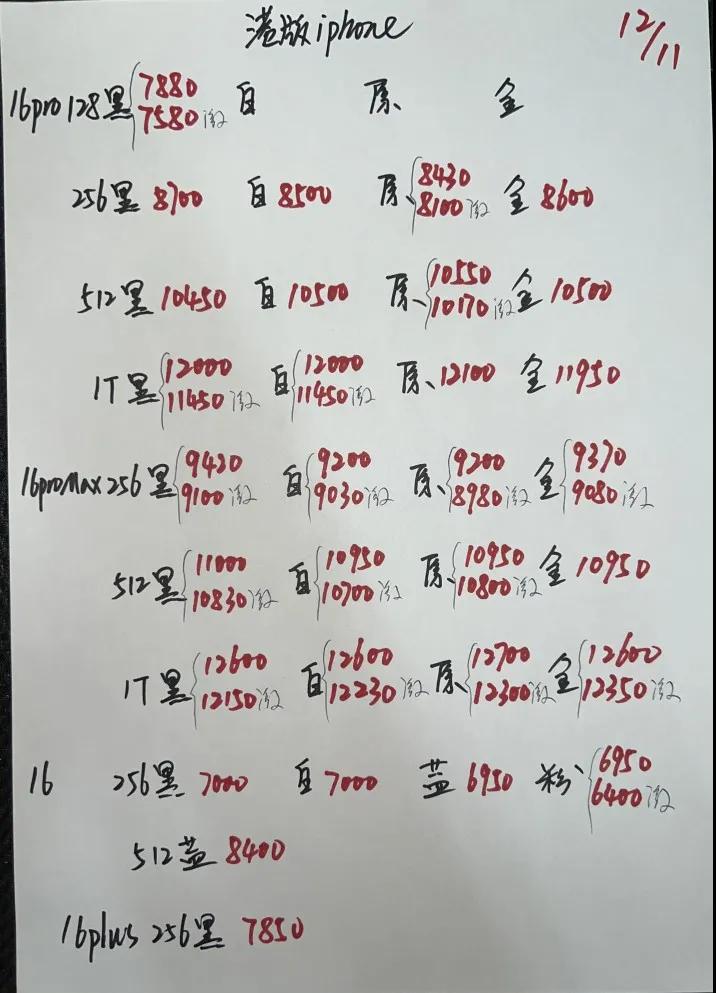 港版iphone 12/11
16pro 128黑 7880 白 原 金
7580激
256黑 8700 白 8500 原 8430 金 8600
8100激
512黑 10450 白 10500 原 10550 金 10500
10170激
1T黑 12000 白 12000 原 12100 金 11950
11450激 11450激
16promax 256黑 9420 白 9200 原 9200 金 9370
9100激 9030激 8980激 9080激
512黑 11000 白 10950 原 10950 金 10950
10830激 10700激 10800激
1T黑 12600 白 12600 原 12700 金 12600
12150激 12230激 12300激 12350激
16 256黑 7000 白 7000 蓝 6950 粉 6950
6400激
512蓝 8400
16plus 256黑 7850